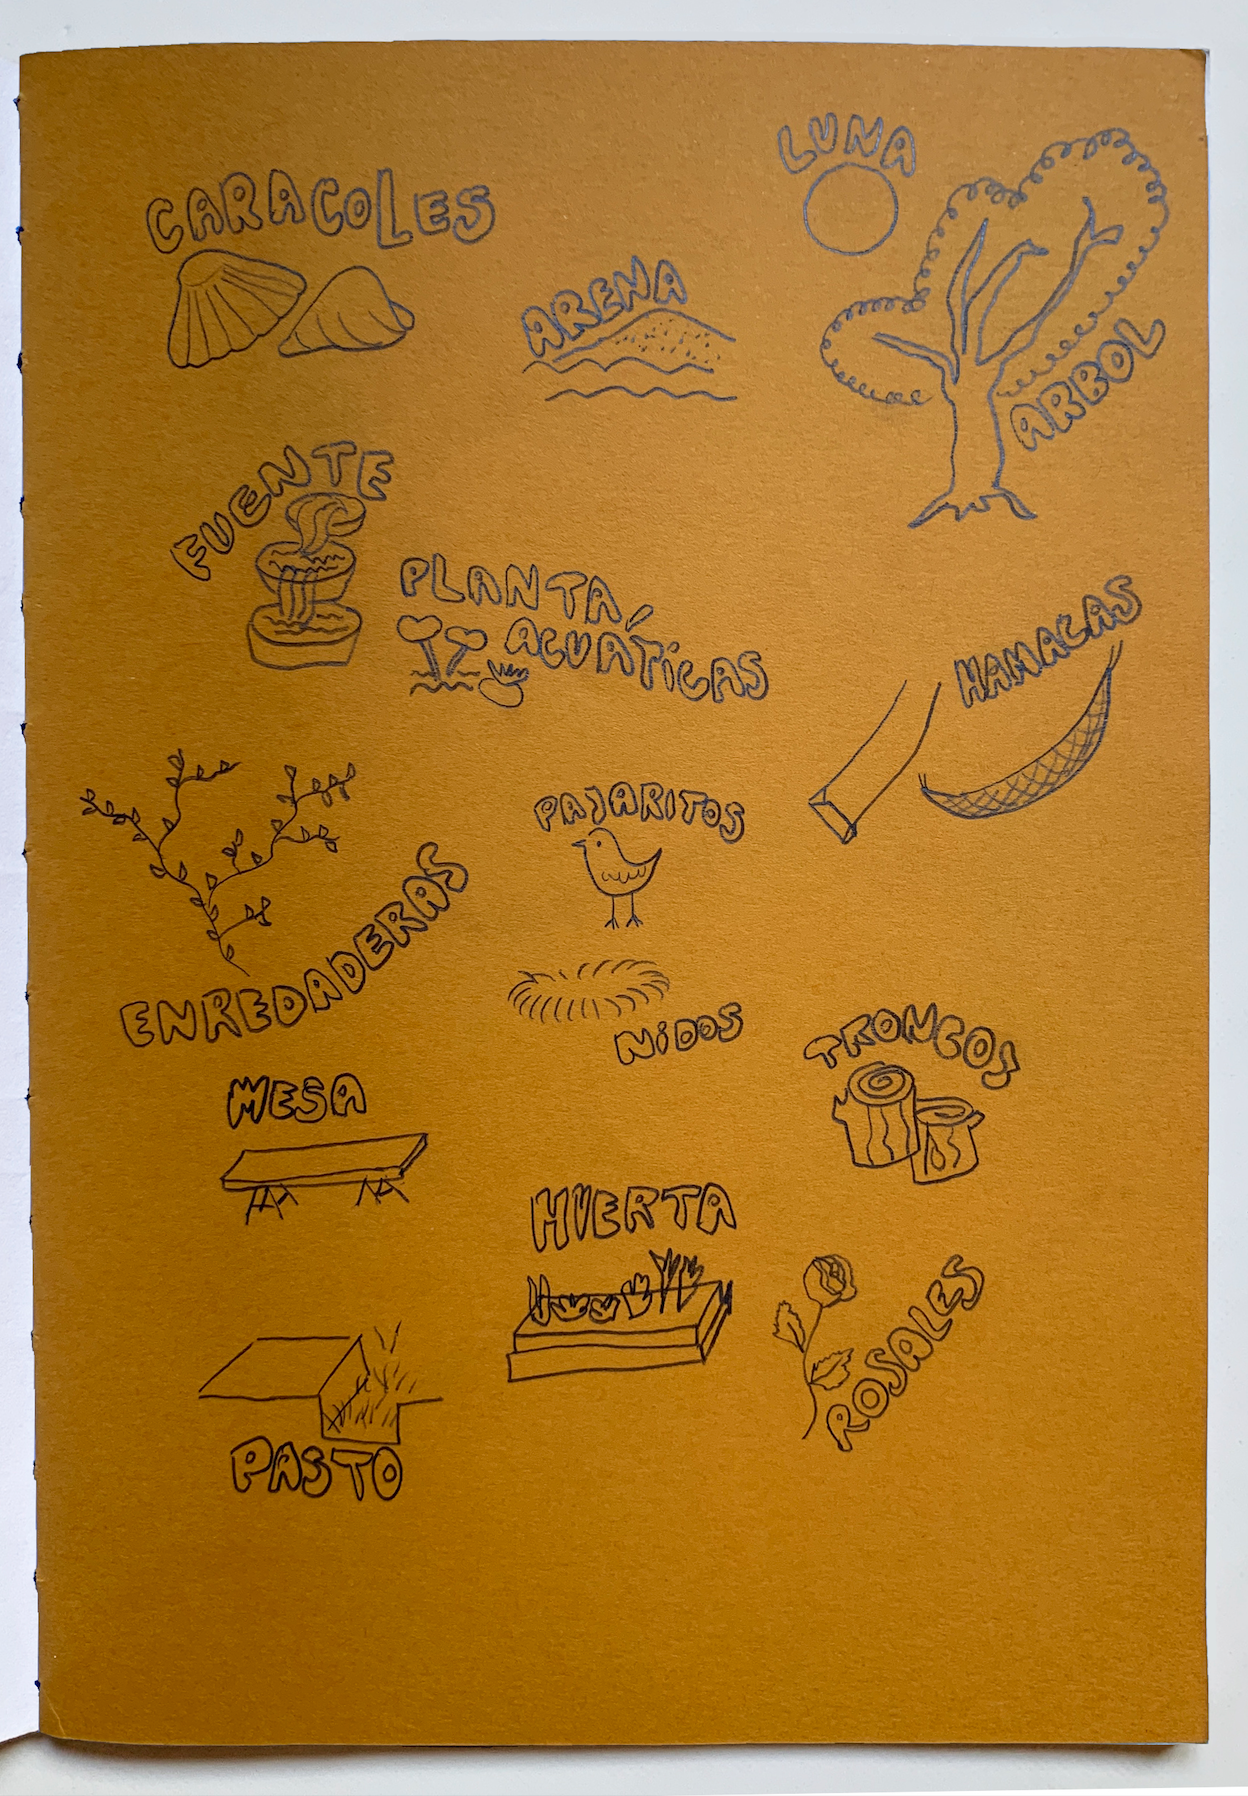 LUNA
CARACOLES
ARENA
ARBOL
FUENTE
PLANTA
ACUÁTICAS
HAMACAS
PAJARITOS
ENREDADERAS
NIDOS
TRONCOS
MESA
HUERTA
ROSALES
PASTO